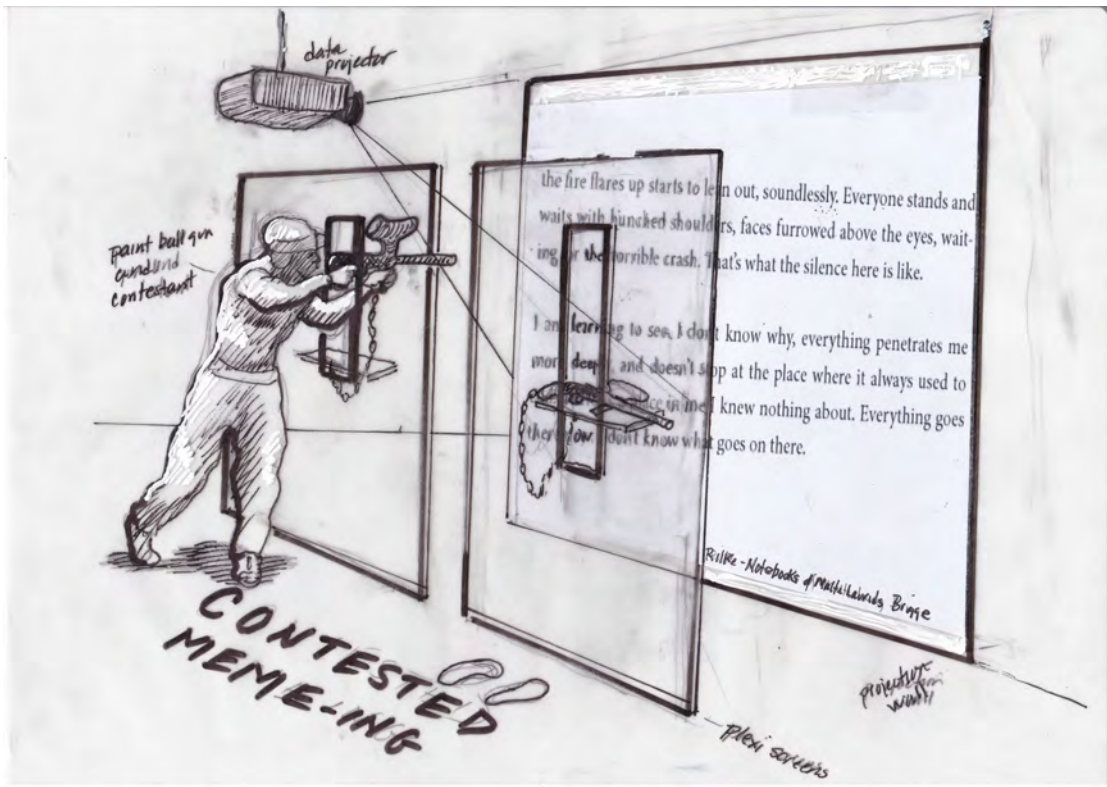 data
projector
paint ball gun
contestant
the fire flares up starts to lean out, soundlessly. Everyone stands and
waits with hunched shoulders, faces furrowed above the eyes, wait-
ing for the horrible crash. That's what the silence here is like.
I am learning to see, I don't know why, everything penetrates me
more deeply, and doesn't stop at the place where it always used to
place in me I knew nothing about. Everything goes
there now. I don't know what goes on there.
Rilke - Notebooks of Brigge
CONTESTED
MEME-ING
projection
wall
plexi screens